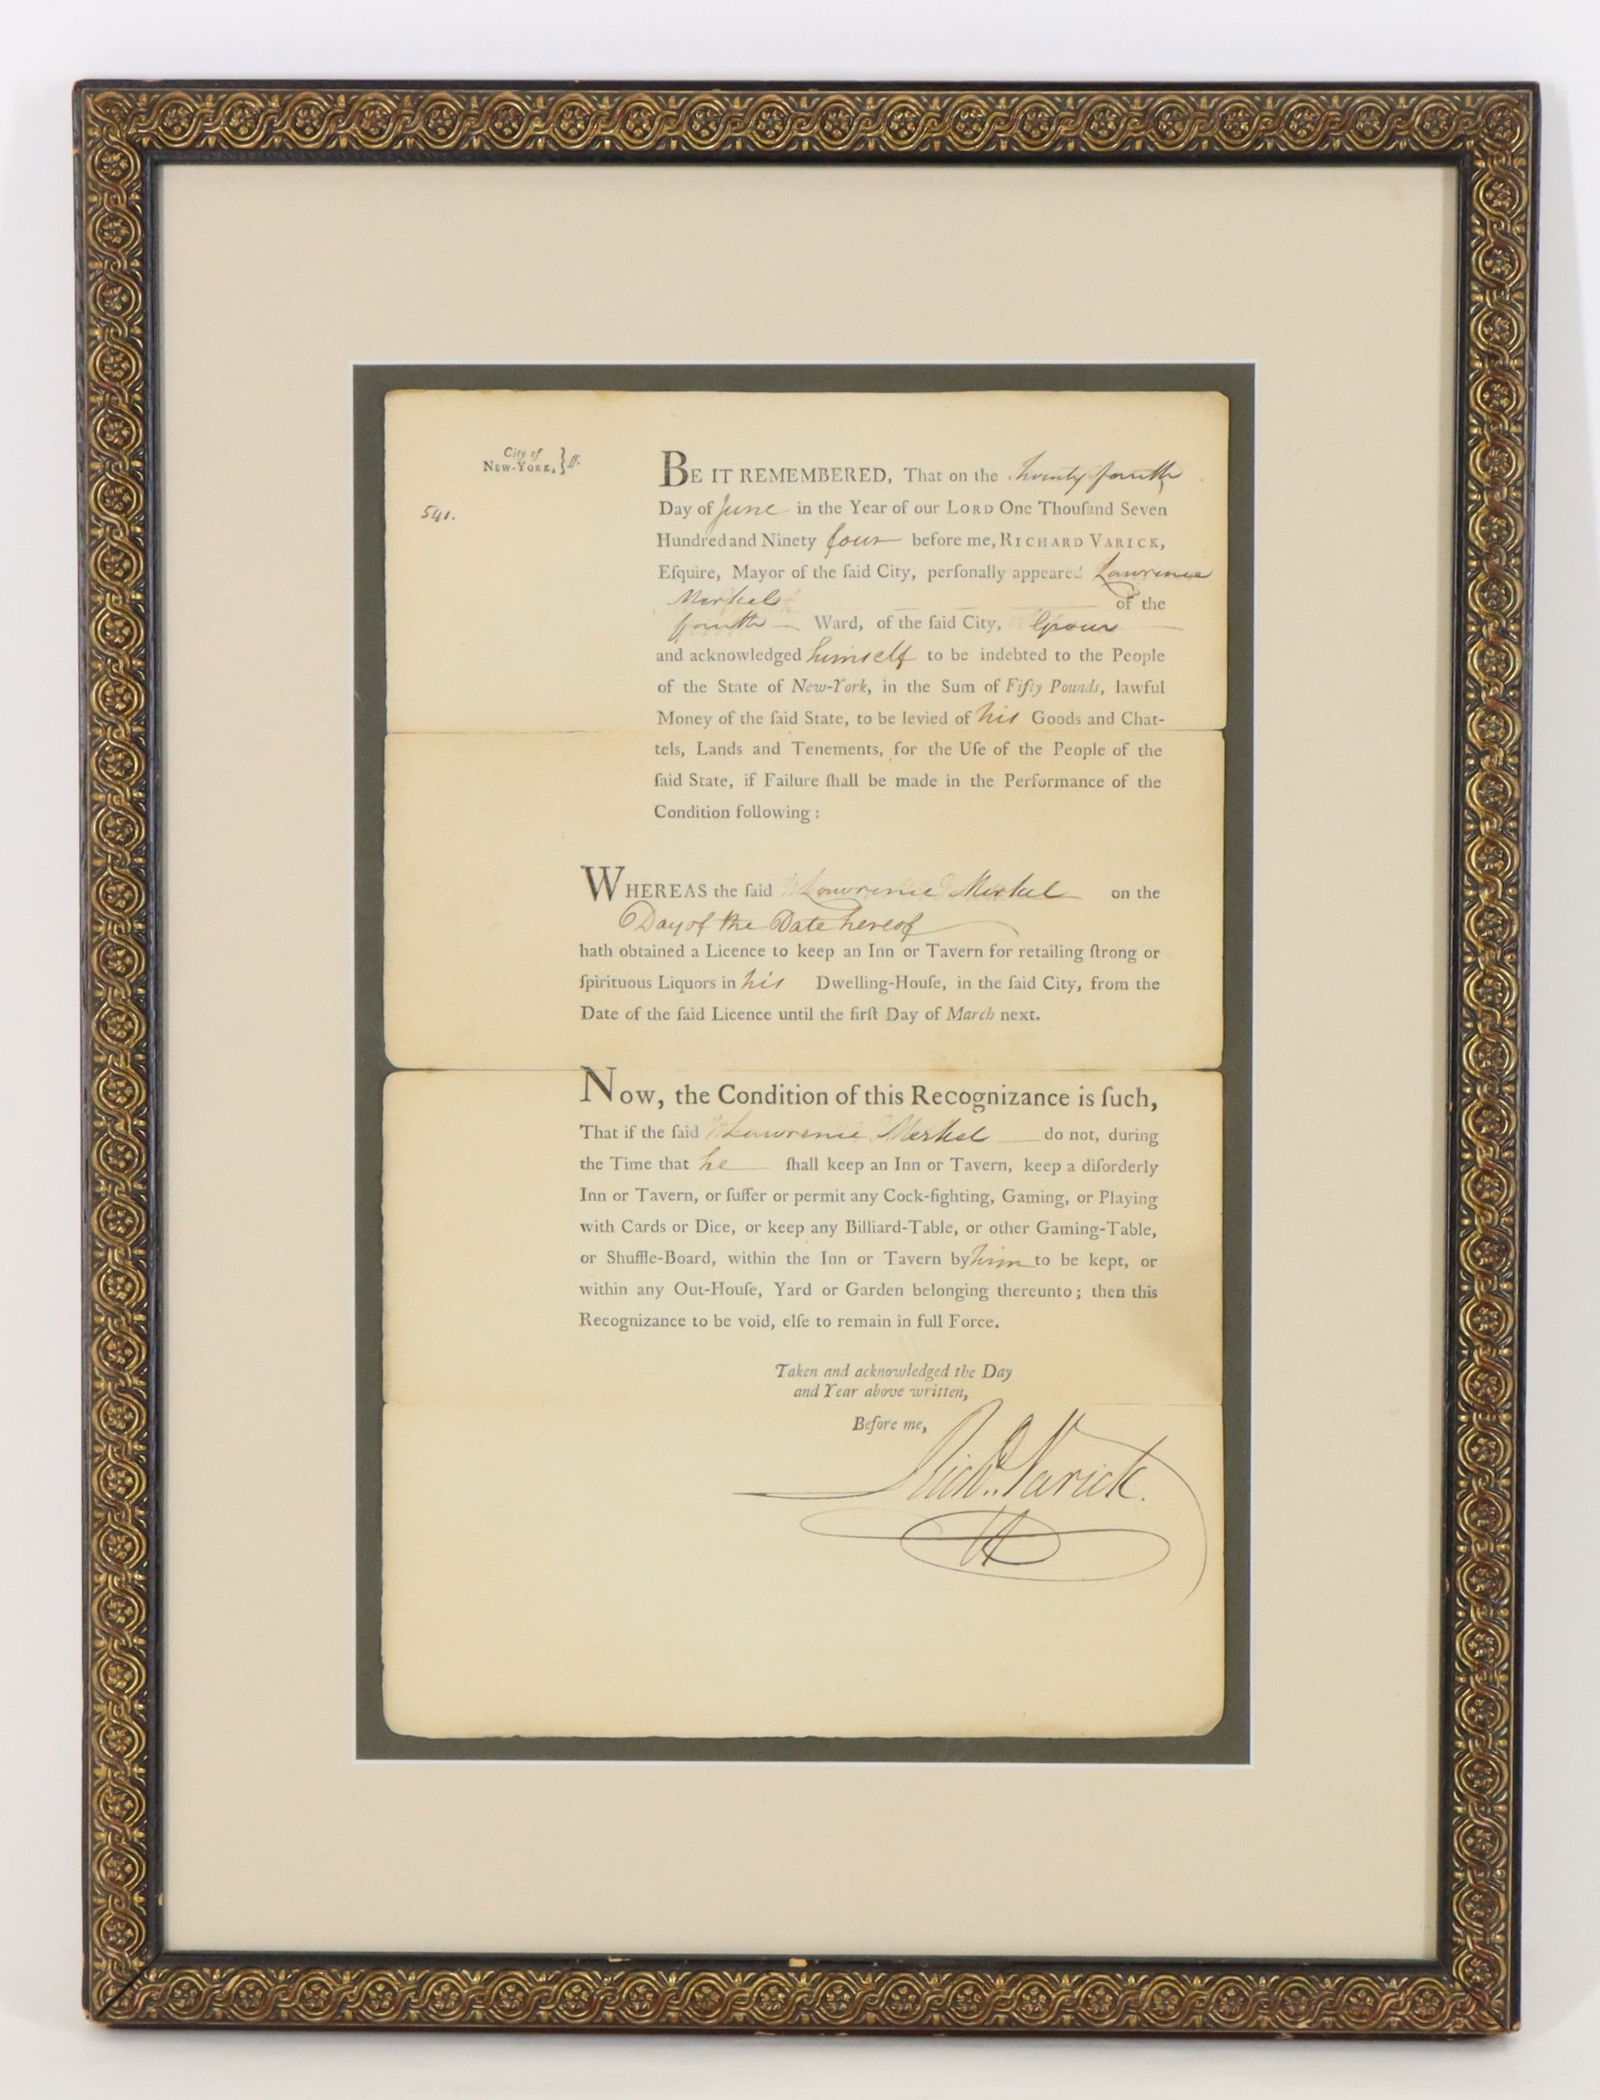 City of
NEW-YORK, } ſſ.
541.
BE IT REMEMBERED, That on the twenty fourth
Day of June in the Year of our LORD One Thouſand Seven
Hundred and Ninety four before me, RICHARD VARICK,
Eſquire, Mayor of the ſaid City, perſonally appeared Lawrence
Merkel of the
fourth Ward, of the ſaid City, Grocer
and acknowledged himself to be indebted to the People
of the State of New-York, in the Sum of Fifty Pounds, lawful
Money of the ſaid State, to be levied of his Goods and Chat-
tels, Lands and Tenements, for the Uſe of the People of the
ſaid State, if Failure ſhall be made in the Performance of the
Condition following:
WHEREAS the ſaid Lawrence Merkel on the
Day of the Date hereof
hath obtained a Licence to keep an Inn or Tavern for retailing ſtrong or
ſpirituous Liquors in his Dwelling-Houſe, in the ſaid City, from the
Date of the ſaid Licence until the firſt Day of March next.
NOW, the Condition of this Recognizance is ſuch,
That if the ſaid Lawrence Merkel do not, during
the Time that he ſhall keep an Inn or Tavern, keep a diſorderly
Inn or Tavern, or ſuffer or permit any Cock-fighting, Gaming, or Playing
with Cards or Dice, or keep any Billiard-Table, or other Gaming-Table,
or Shuffle-Board, within the Inn or Tavern by him to be kept, or
within any Out-Houſe, Yard or Garden belonging thereunto; then this
Recognizance to be void, elſe to remain in full Force.
Taken and acknowledged the Day
and Year above written,
Before me,
Richd. Varick.